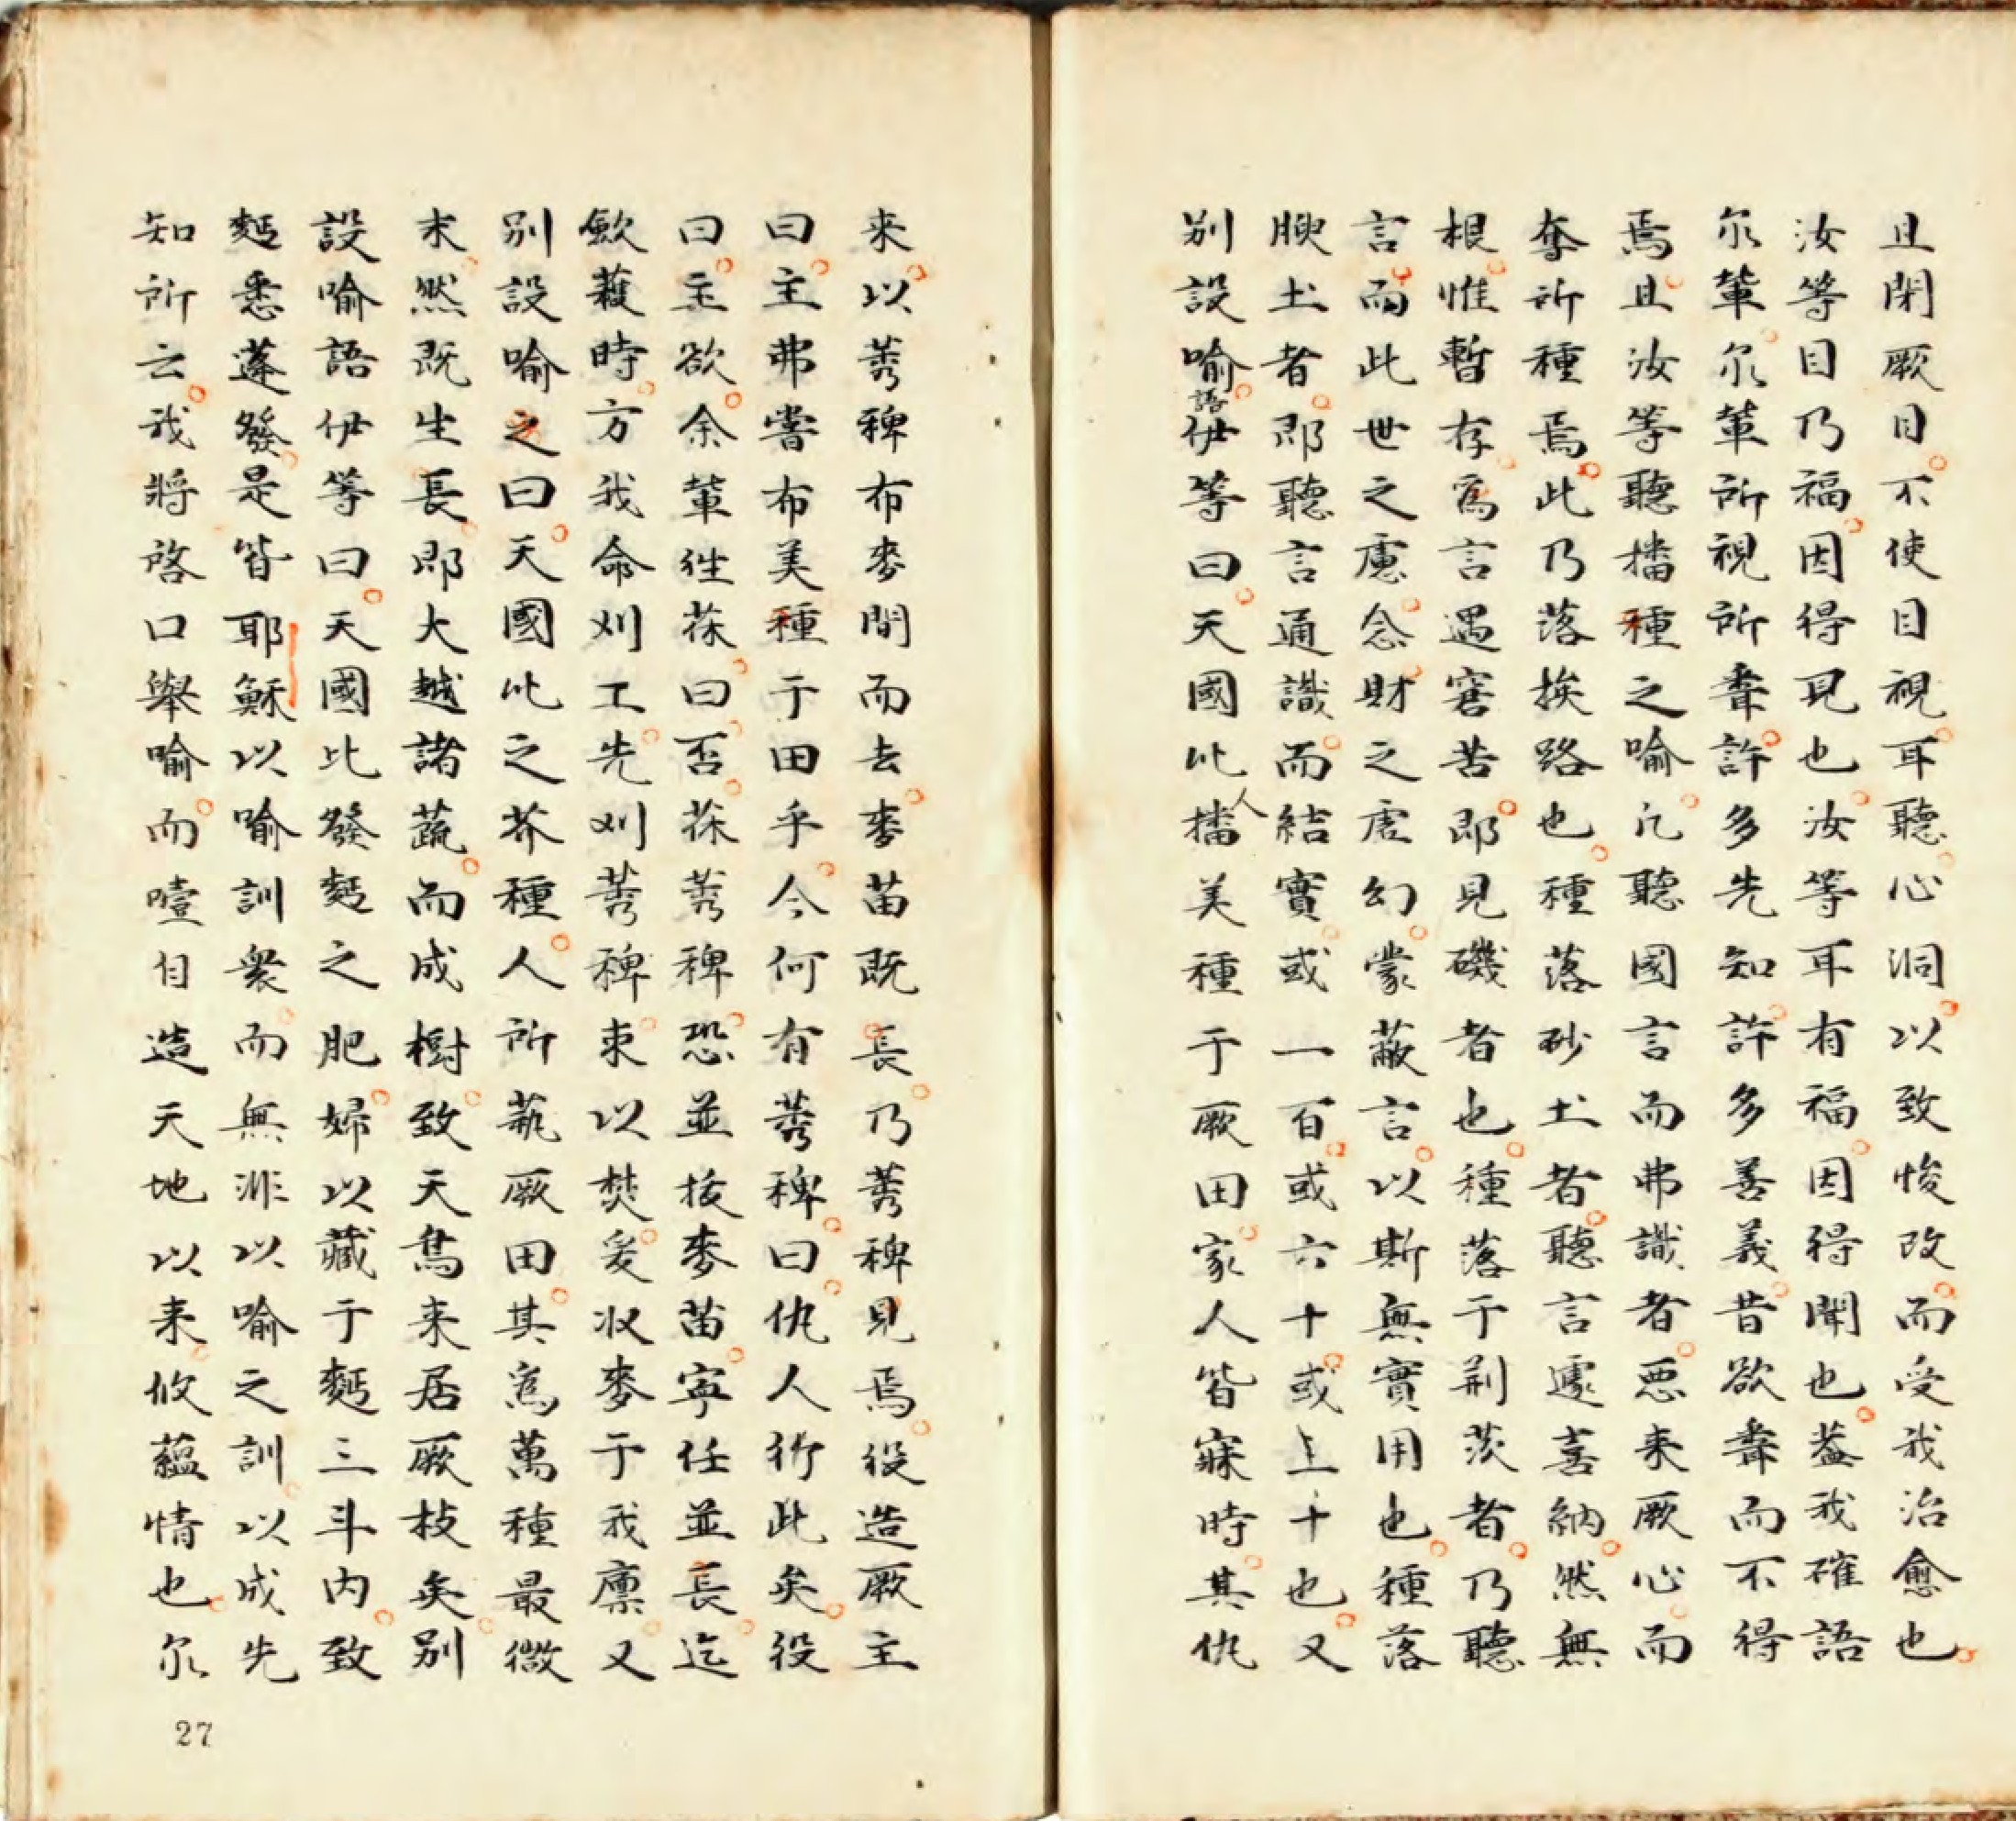 且閉厥目不使目視耳聽心洞以致悛改而受我治愈也
汝等目乃福因得見也汝等耳有福因得聞也葢我確語
尔軰尔軰所視所𦗟許多先知許多善義昔欲𦗟而不得
焉且汝等聽播種之喻凢聽國言而弗識者惡来厥心而
奪所種焉此乃落挨路也種落砂土者聽言遽喜納然無
根惟暫存爲言遇窘苦即見磯者也種落于荆茨者乃聽
言而此世之慮念財之虚幻䝉蔽言以斯無實用也種落
腴土者即聽言通識而結實或一百或六十或上十也又
别設喻語伊等曰天國比人播美種于厥田家人皆寐時其仇
来以莠稗布麥間而去麥苗既長乃莠稗見焉役造厥主
曰主弗嘗布美種于田乎今何有莠稗曰仇人行此矣役
曰主欲余軰徃䅗曰否䅗莠稗恐並拔麥苗寧任並長迄
歛穫時方我命刈工先刈莠稗束以焚爰收麥于我廪又
别設喻之曰天國比之芥種人所蓺厥田其爲萬種最微
末然既生長即大越諸蔬而成樹致天鳥来居厥枝矣别
設喻語伊等曰天國比發麪之肥婦以藏于麪三斗内致
麪悉蓬發是皆耶穌以喻訓衆而無非以喻之訓以成先
知所云我將啓口舉喻而噎自造天地以来攸藴情也尔
27